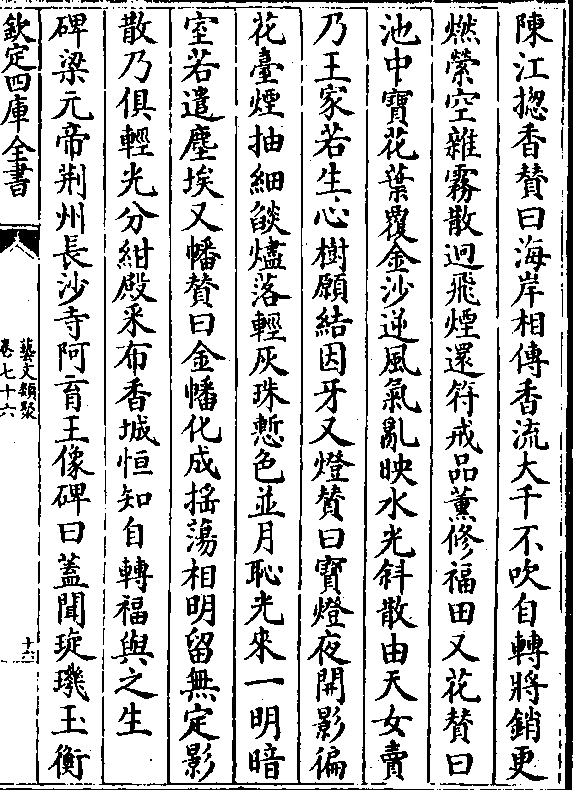 陳江揔香賛曰海岸相傳香流大千不吹自轉將銷更
燃縈空雜霧散迥飛煙還符戒品薰修福田又花賛曰
池中寶花葉覆金沙逆風氣亂映水光斜散由天女賣
乃王家若生心樹願結因牙又燈賛曰寳燈夜開影徧
花臺煙抽細燄燼落輕灰珠慙色並月恥光來一明暗
室若遣塵埃又幡賛曰金幡化成揺蕩相明留無定影
散乃俱輕光分紺殿采布香城恒知自轉福與之生
碑梁元帝荆州長沙寺阿育王像碑曰蓋聞琁璣玉衡
欽定四庫全書
藝文類聚
卷七十六
十六